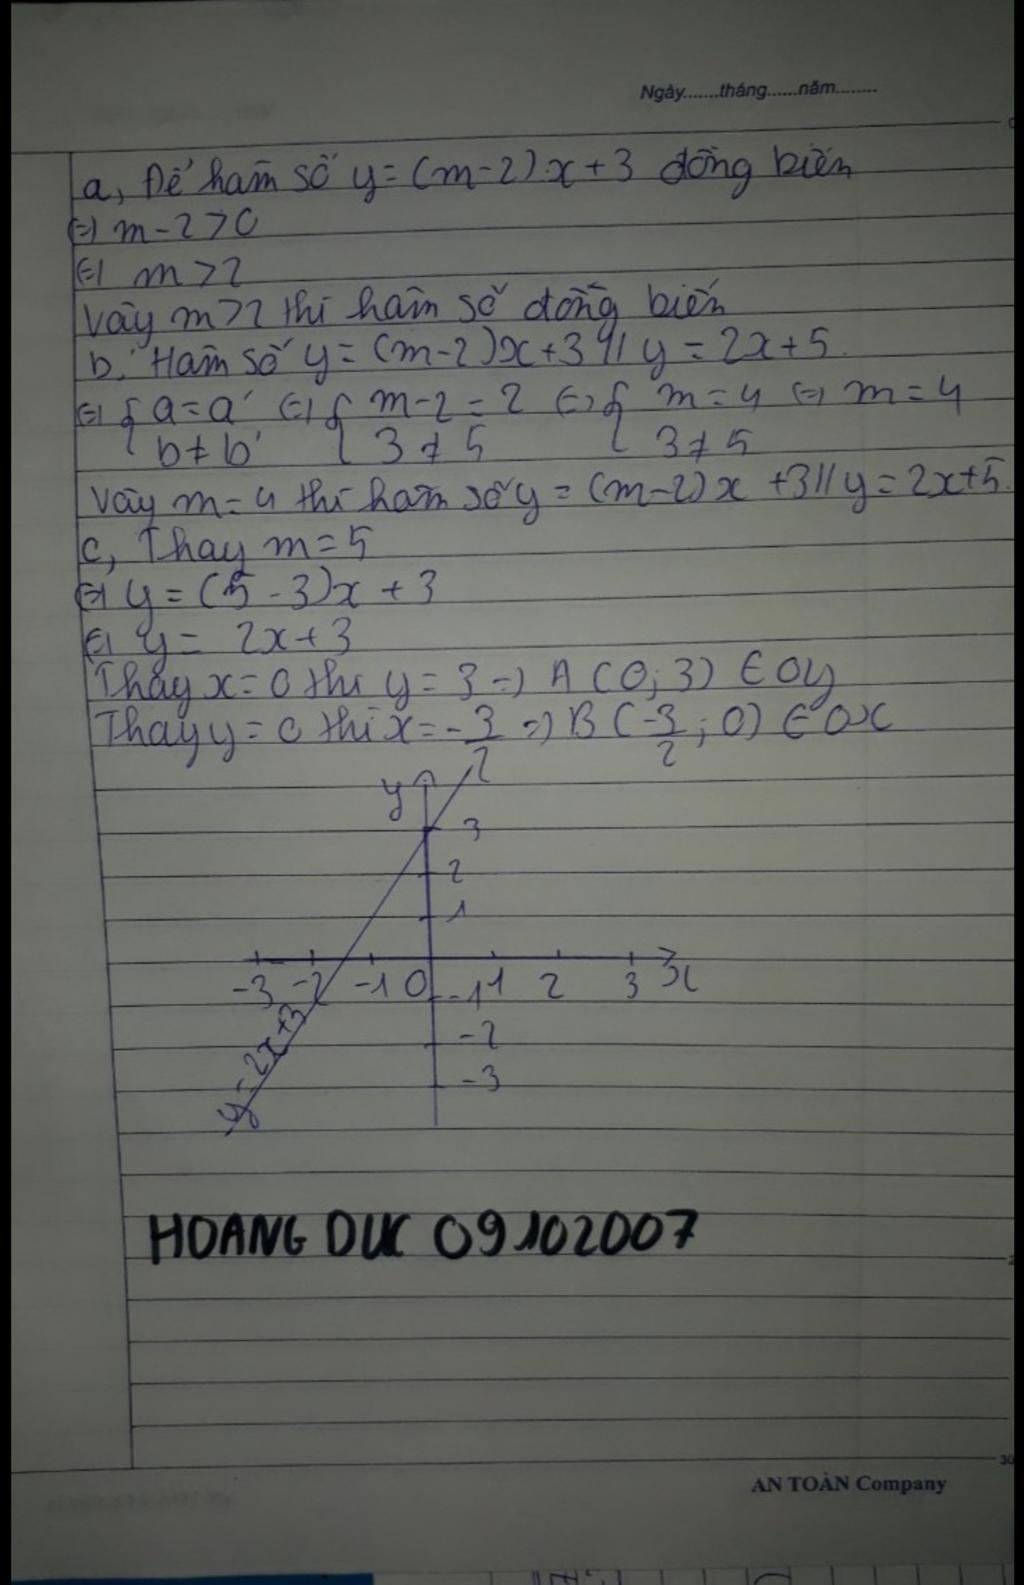 Ngày.......tháng......năm........
a, Để hàm số y = (m-2).x+3 đồng biến
⇔ m-2>0
⇔ m>2
Vậy m>2 thì hàm số đồng biến
b. Hàm số y = (m-2)x+3 // y = 2x+5.
⇔ { a=a' ⇔ { m-2=2 ⇔ { m=4 ⇔ m=4
b≠b' 3≠5 3≠5
Vậy m=4 thì hàm số y = (m-2)x +3 // y = 2x+5.
c, Thay m=5
⇔ y = (5-3)x+3
⇔ y = 2x+3
Thay x=0 thì y=3 => A(0;3) ∈ Oy
Thay y=0 thì x=-3/2 => B(-3/2;0) ∈ Ox
y
3
2
1
-3 -2 -1 0 1 2 3 x
-1
-2
-3
y=2x+3
HOANG DUC 09102007
AN TOÀN Company
30